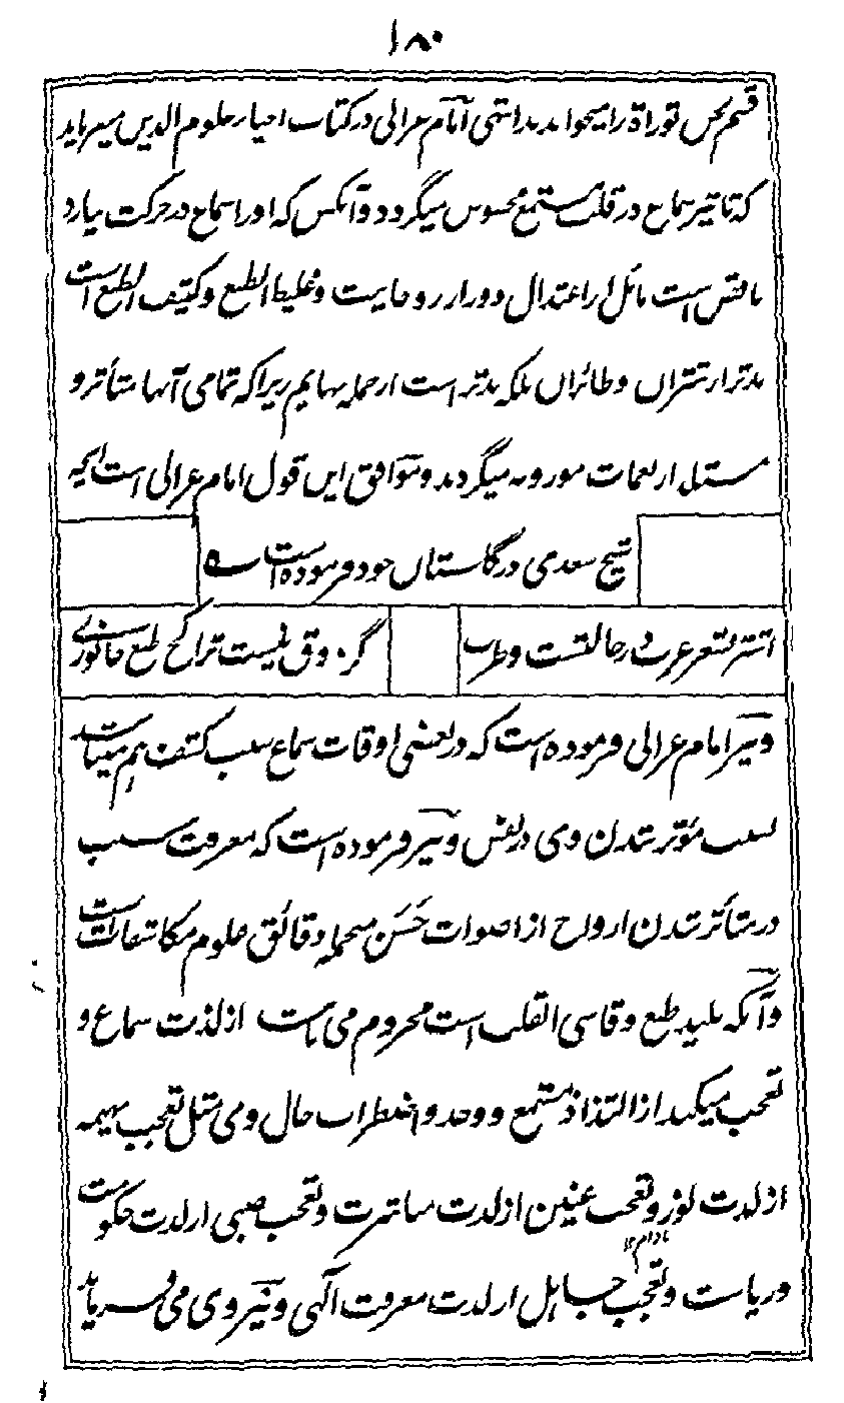 ۱۸۰
قسم لحن توراة را میخواند بدانستمی امام غزالی در کتاب احیاء علوم الدین میفرماید
که تاثیر سماع در قلب مستمع محسوس میگردد و آنکس که او را سماع در حرکت نیارد
ناقص است مائل از اعتدال دور از روحانیت و غلیظ الطبع و کثیف الطبع است
بدتر از شتران و طائران بلکه بدتر است از جمله بهایم زیرا که تمامی آنها متأثر و
مستلذ از نغمات موزونه میگردند و موافق این قول امام غزالی است آنچه
شیخ سعدی در گلستان خود فرموده است
اشتر بشعر عرب در حالتست و طرب
گر ذوق نیست ترا کج طبع جانوری
و نیز امام غزالی فرموده است که در بعضی اوقات سماع سبب کشف هم میباشد
بسبب مؤثر شدن وی در نفس و نیز فرموده است که معرفت سبب
در متأثر شدن ارواح از اصوات حسن منجمله دقائق علوم مکاشفات است
و آنکه بلید طبع و قاسی القلب است محروم می باشد از لذت سماع و
تعجب میکند از التذاذ مستمع و وجد و اضطراب حال وی مثل تعجب بهیمه
از لذت لوز و تعجب عنین از لذت مباشرت و تعجب صبی از لذت حکومت
بادام ۱۲
و ریاست و تعجب جاهل از لذت معرفت آلهی و نیز وی می فرماید